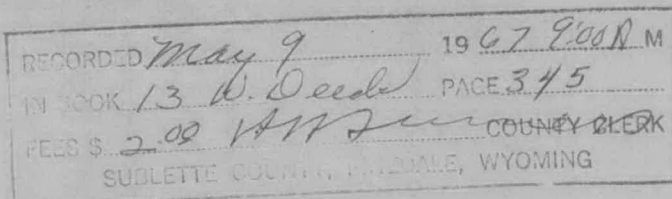 RECORDED May 9 1967 9:00 A M
IN BOOK 13 W. Deeds PAGE 345
FEES $ 2.00 COUNTY CLERK
SUBLETTE COUNTY, PINEDALE, WYOMING